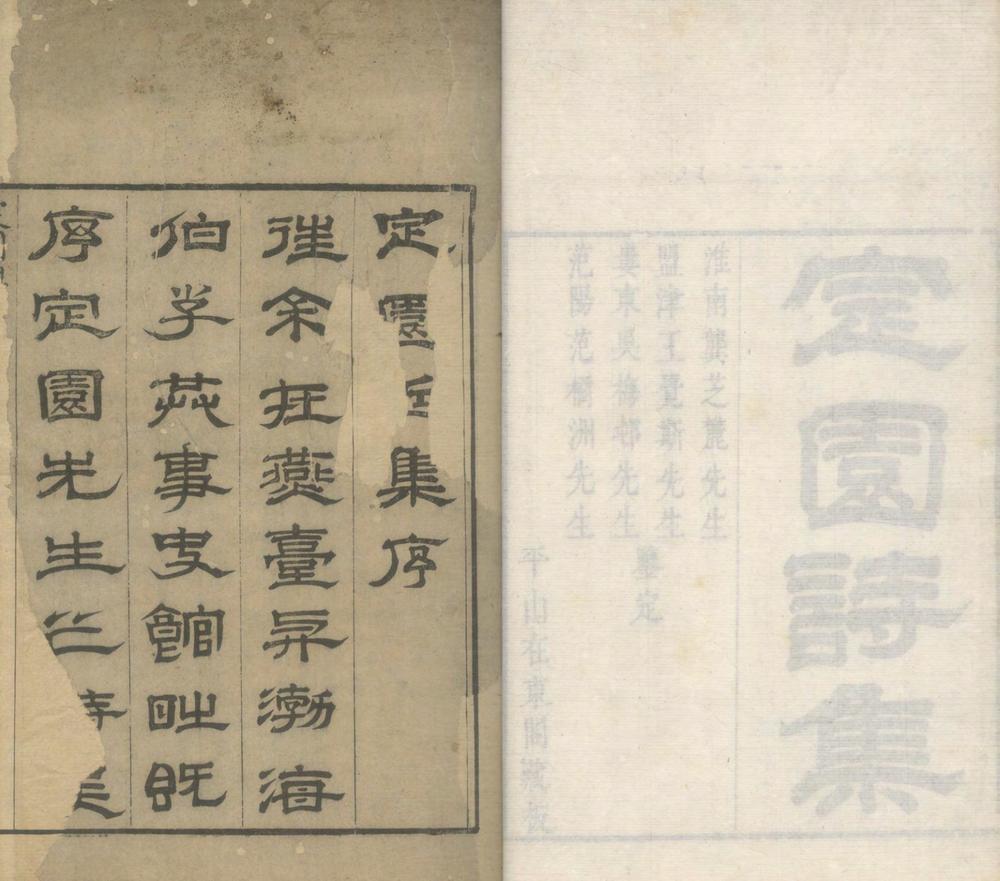 定園詩集
淮南龔芝麓先生
盟津王覺斯先生
婁東吳梅邨先生
范陽范洲先生
鑒定
平山在東閣藏板
定園集序
徃余在燕臺與渤海
伯共事史館時既
序定園先生之詩